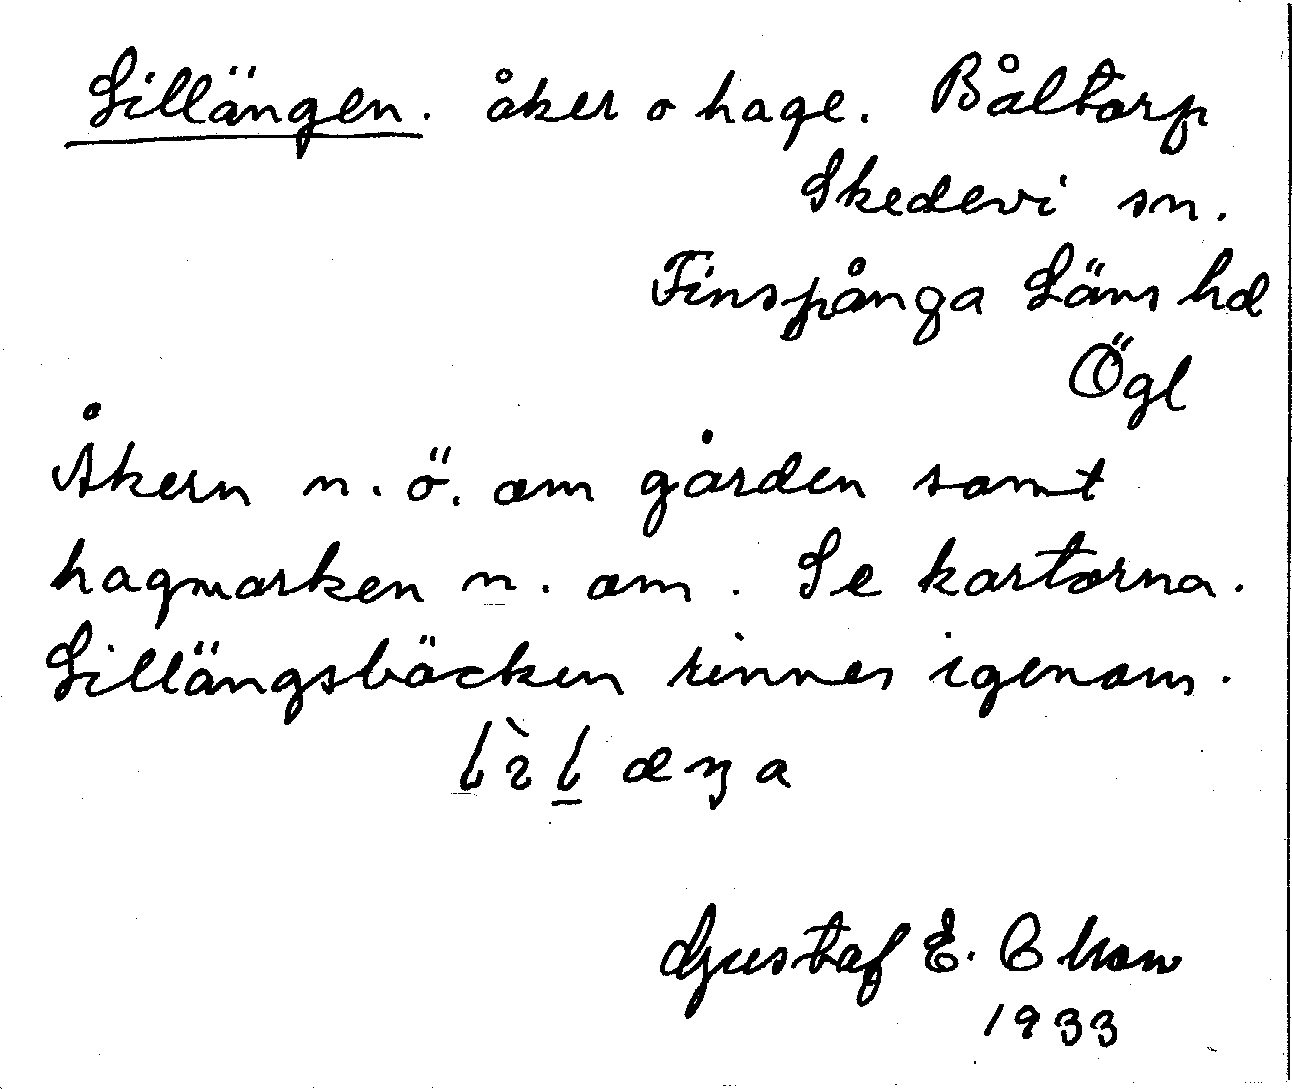 Lillängen. åker o hage. Båltorp
Skedevi sn.
Finspånga Läns hd
Ögl
Åkern n.ö. om gården samt
hagmarken n. om. Se kartorna.
Lillängsbäcken rinner igenom.
lìlæŋa
Gustaf E.
1933